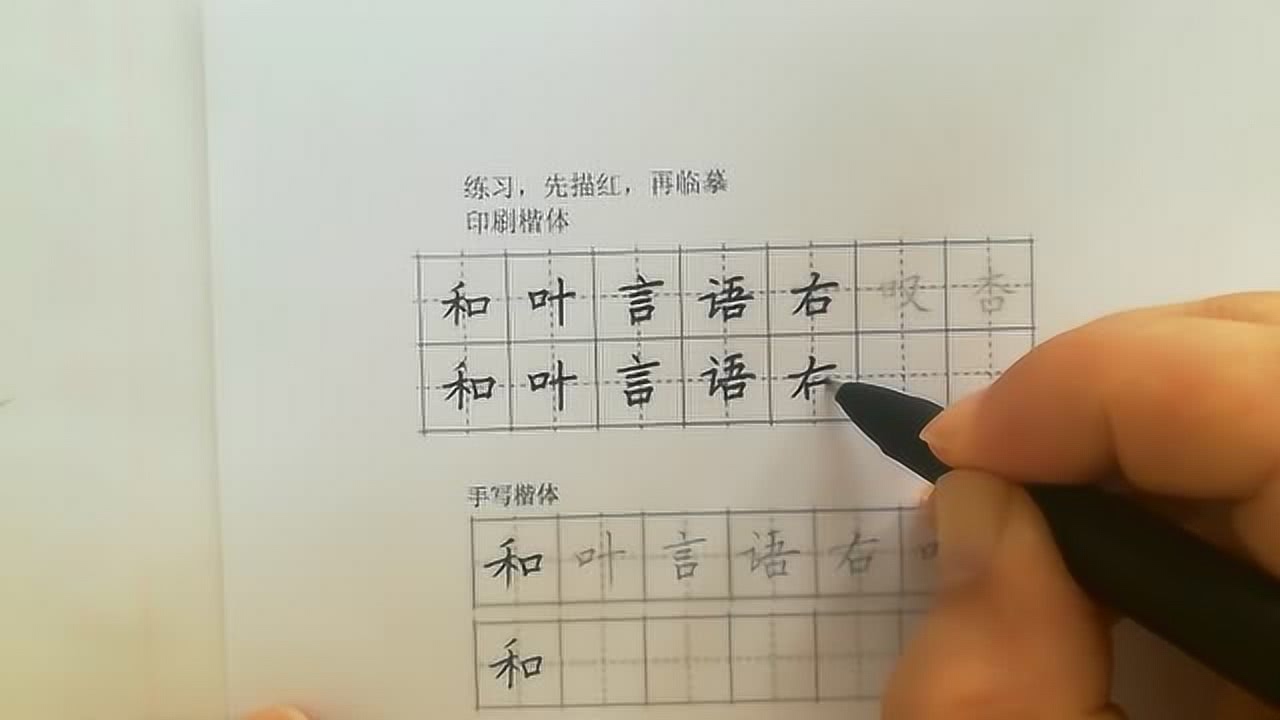 练习，先描红，再临摹
印刷楷体
和 叶 言 语 右 叹 杏
和 叶 言 语
手写楷体
和 叶 言 语 右
和